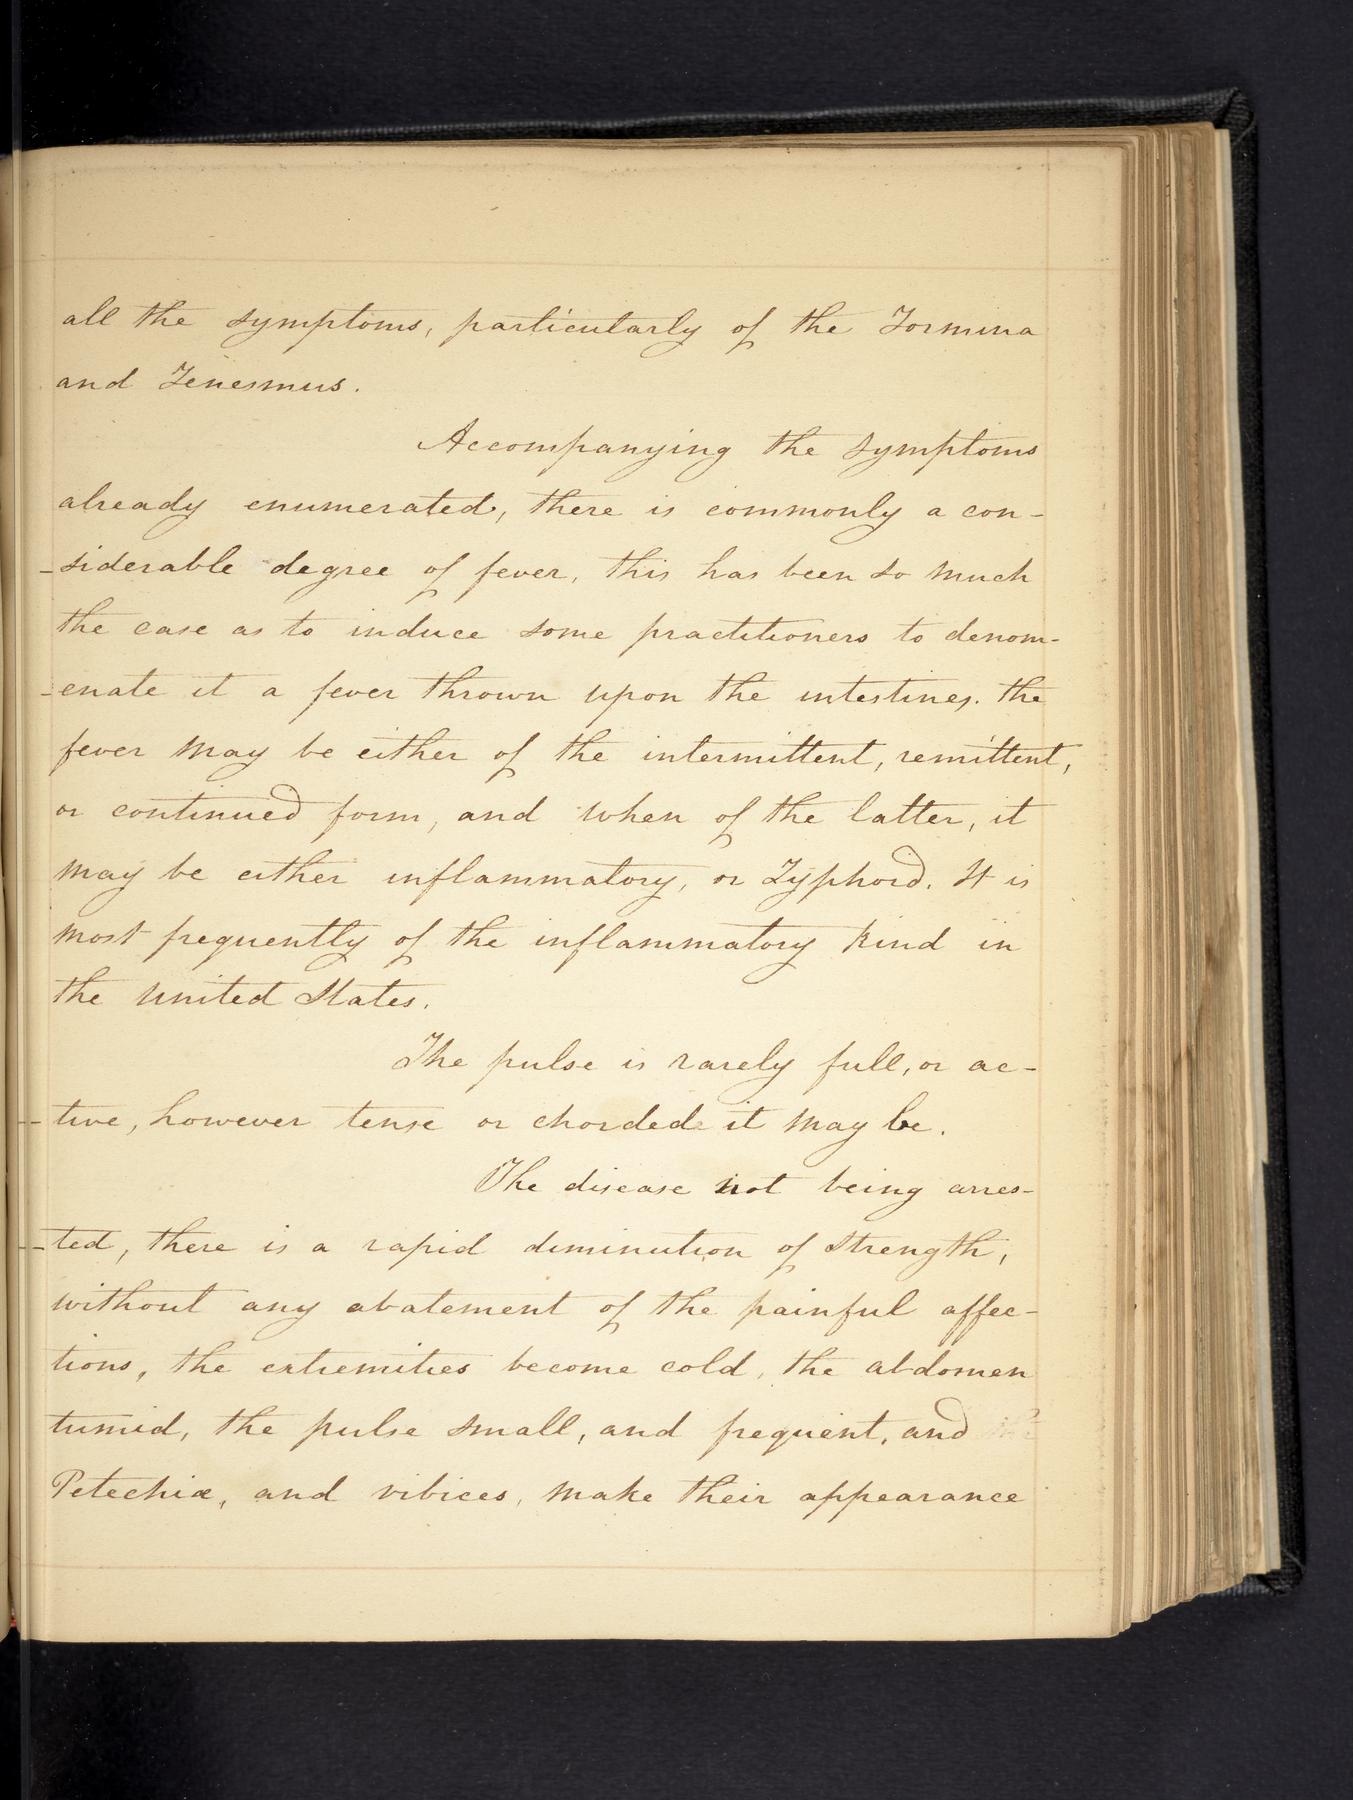 all the symptoms, particularly of the Tormina
and Tenesmus.
Accompanying the symptoms
already enumerated, there is commonly a con-
-siderable degree of fever, this has been so much
the case as to induce some practitioners to denom-
-enate it a fever thrown upon the intestines. the
fever may be either of the intermittent, remittent,
or continued form, and when of the latter, it
may be either inflammatory, or Typhoid. It is
most frequently of the inflammatory kind in
the United States.
The pulse is rarely full, or ac-
-tive, however tense or chorded it may be.
The disease not being arres-
-ted, there is a rapid diminution of strength,
without any abatement of the painful affec-
tions, the extremities become cold, the abdomen
tumid, the pulse small, and frequent, and
Petechiæ, and vibices, make their appearance